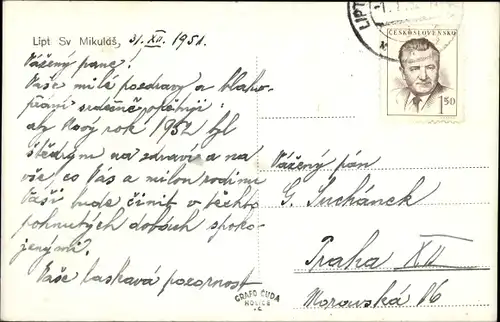 Lipt. Sv. Mikuláš, 31/XII. 1951.
Vážený pane!
Vaše milé pozdravy a blaho-
přání srdečně opětuji:
aby Nový rok 1952 byl
štědrým na zdraví a na
vše, co Vás a milou rodinu
Vaší bude činit v těchto
pohnutých dobách spoko-
jenými.
Vaše laskavá pozornost
LIPT
ČESKOSLOVENSKO
1.50
Vážený pán
G. Suchánek
Praha XII
Moravská 16
GRAFO ČUDA
HOLICE